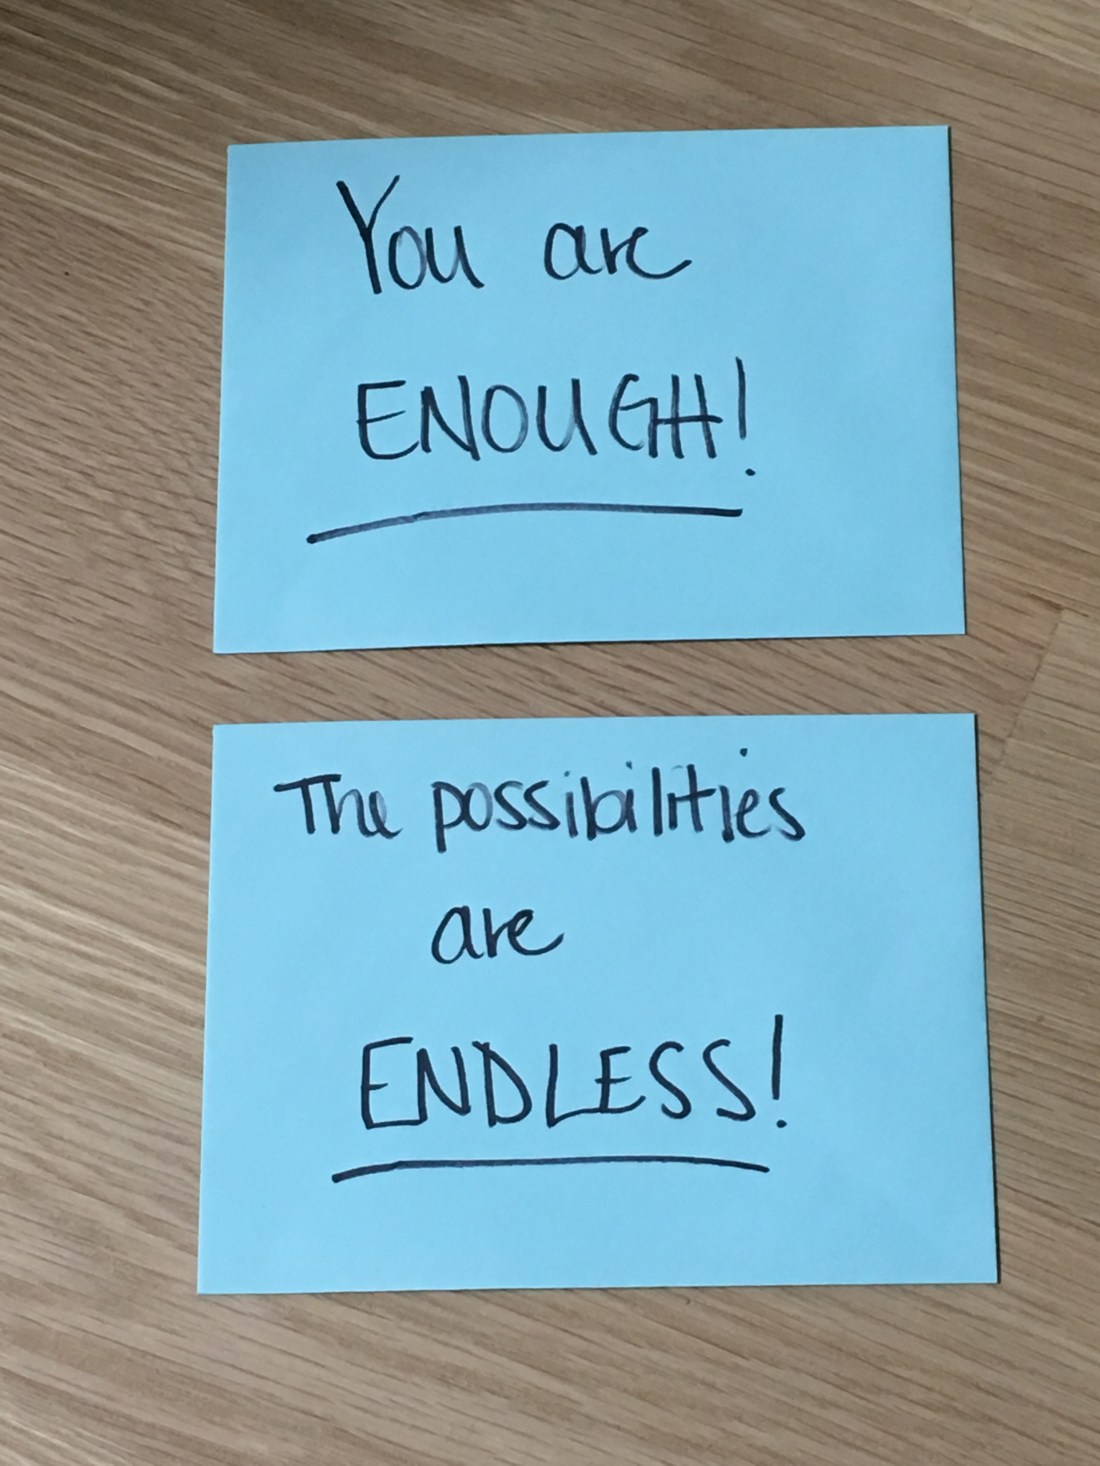 You are
ENOUGH!
The possibilities
are
ENDLESS!